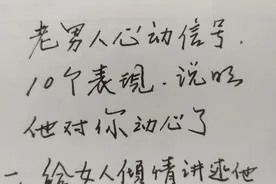 老男人心动信号.
10个表现.说明
他对你动心了
一给女人倾情讲述他